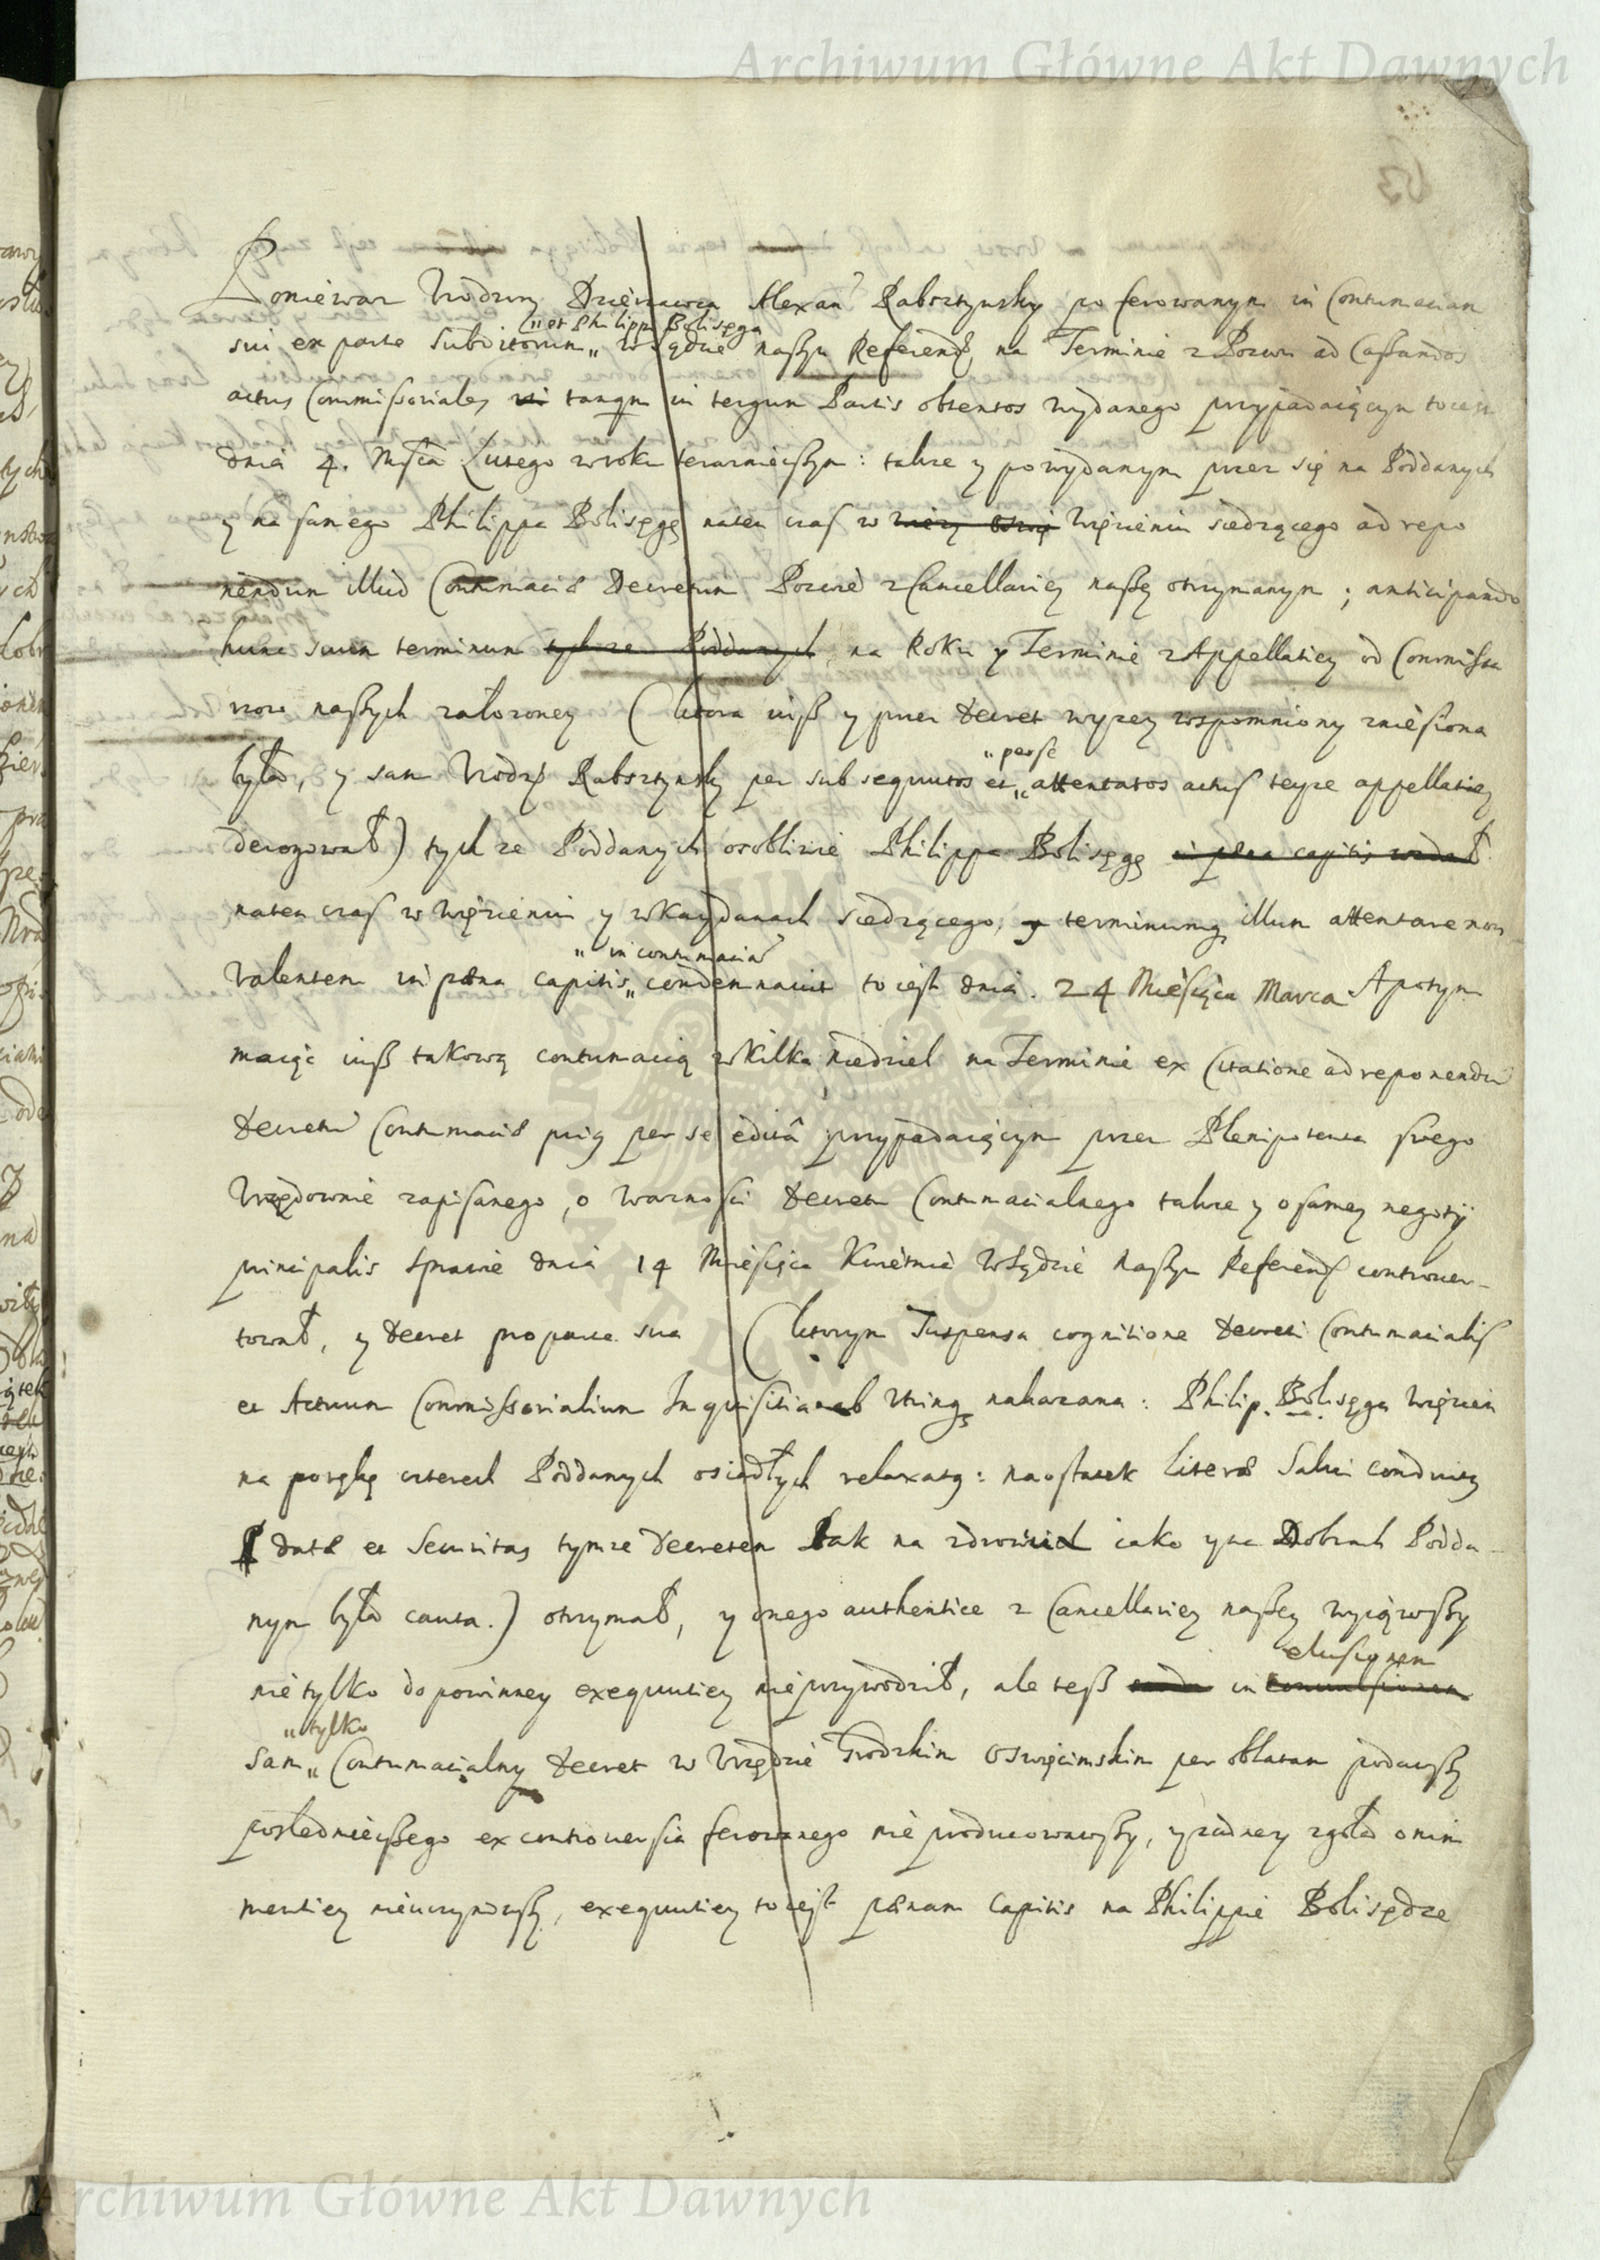 Archiwum Główne Akt Dawnych
63
Poniewaz Vrodzony Dzierzawca Alexan Rabsztynsky po ferowanym in Contumaciam
"et Philippi Bolisęga
sui ex parte Subditorum " w Sądzie naszym Referend. na Terminie z Pozwu ad Cassandos
actus Commissoriales tanqm in tergum Partis obtentos wydanego przypadaiącym to iest
dnia 4. Msca Lutego w roku terazniejszym: takze y po wydanym przez się na Poddanych
y na samego Philippa Bolisęgę naten czas w Więzieniu siedzącego ad repo
nendum illud Contumaciae Decretum Pozwie z Cancellariey naszey otrzymanym; anticipando
hunc suum terminum tychze Poddanych na Roku y Terminie z Appellatiey od Commissa
rzow naszych załozoney (ktora iusz y przez decret wyzey wspomniony zniesiona
"per se
była, y sam Vrodz. Rabsztynsky per subsequutos et " attentatos actus teyze appellatiey
derogował) tychze Poddanych osobliwie Philippa Bolisęgę in paena capitis wzdał
naten czas w Więzieniu y w Kaydanach siedzącego, y terminumq illum attentare non
" in contumaciam
valentem in paena capitis " condemnauit to iest dnia. 24 Miesiąca Marca A potym
maiąc iusz takową contumacią w kilka niedziel na Terminie ex Citatione ad reponendum
decretum Contumaciae prius per se edita przypadaiącym przez Plenipotenta swego
Vrzędownie zapisanego, o waznosci decretu Contumacialnego takze y o samey negotij
principalis sprawie dnia 14 Miesiąca Kwietnia w Sądzie Naszym Referend. controuer-
tował, y decret pro parte sua (ktorym Suspensa cognitione decreti Contumacialis
et Actuum Commissorialium Inquisitia utrinq nakazana: Philip. Bolisęga więzien
na porękę czterech Poddanych osiadłych relaxaty: na ostatek Literae Salui Conductus
datae et Securitas tymze decretem tak na zdrowiu iako y na Dobrach Podda-
nym była cauta.) otrzymał, y onego authentice z Cancellariey naszey wyiąwszy
elusionem
nie tylko do powinney exequutiey nie przywodził, ale tesz in conuulsionem
" tylko
sam " Contumacialny decret w Vrzędzie Grodzkim Oswięcimskim per oblatam podawszy
posledniejszego ex controuersia ferowanego nie producowawszy, y zadney zgoła o nim
mentiey nieuczyniwszy, exequutiey to iest paenam Capitis na Philippie Bolisędze
Archiwum Główne Akt Dawnych